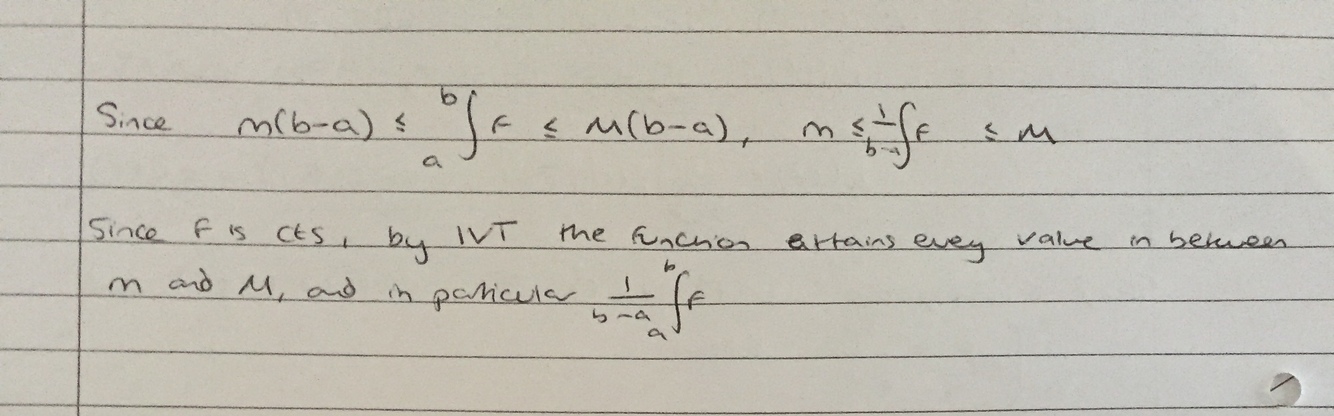 Since m(b-a) ≤ a∫b f ≤ M(b-a), m ≤ 1/(b-a) ∫f ≤ M
Since f is cts, by IVT the function attains evey value in between
m and M, and in paticular 1/(b-a) a∫b f